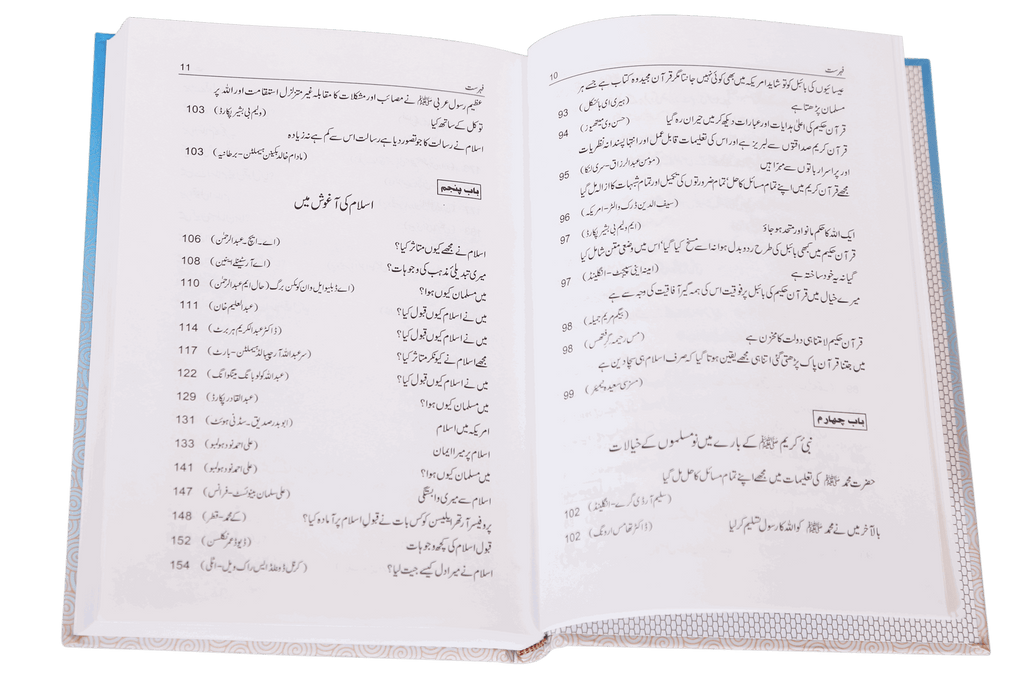 فہرست
10
عیسائیوں کی بائبل کو تو شاید امریکہ میں بھی کوئی نہیں جانتا مگر قرآن مجید وہ کتاب ہے جسے ہر
مسلمان پڑھتا ہے (ہیری ای ہائنکل) 93
قرآن حکیم کی اعلیٰ ہدایات اور عبارات دیکھ کر میں حیران رہ گیا (حسن وی میتھیوز) 94
قرآن کریم صداقتوں سے لبریز ہے اور اس کی تعلیمات قابل عمل اور انتہا پسندانہ نظریات
اور پراسرار باتوں سے مبرا ہیں (مومن عبدالرزاق۔ سری لنکا) 95
مجھے قرآن کریم میں اپنے تمام مسائل کا حل تمام ضرورتوں کی تکمیل اور تمام شبہات کا ازالہ مل گیا
(سیف الدین ڈرک والٹر۔ امریکہ) 96
ایک اللہ کا حکم مانو اور متحد ہو جاؤ (ایم ولیم بی بشیر پکارڈ) 97
قرآن حکیم میں کبھی بائبل کی طرح ردو بدل ہوا نہ اسے مسخ کیا گیا' اس میں وضعی متن شامل کیا
گیا نہ یہ خود ساختہ ہے (امینہ اینی۔ انگلینڈ) 97
میرے خیال میں قرآن حکیم کی بائبل پر فوقیت اس کی ہمہ گیر آفاقیت کی وجہ سے ہے
(بیگم مریم جمیلہ) 98
قرآن حکیم لامتناہی دولت کا مخزن ہے (مس رحیمہ گرفتھس) 98
میں جتنا قرآن پاک پڑھتی گئی اتنا ہی مجھے یقین ہوتا گیا کہ صرف اسلام ہی سچا دین ہے
(مسز سعیدہ) 99
باب چهارم
نبیٔ کریم ﷺ کے بارے میں نومسلموں کے خیالات
حضرت محمد ﷺ کی تعلیمات میں مجھے اپنے تمام مسائل کا حل مل گیا
(سلیم آر ڈی گرے۔ انگلینڈ) 102
بالآخر میں نے محمد ﷺ کو اللہ کا رسول تسلیم کر لیا (ڈاکٹر تھامس ارونگ) 102
فہرست
11
عظیم رسول عربی ﷺ نے مصائب اور مشکلات کا مقابلہ غیر متزلزل استقامت اور اللہ پر
توکل کے ساتھ کیا (ولیم بی بشیر پکارڈ) 103
اسلام نے رسالت کا جو تصور دیا ہے رسالت اس سے کم ہے نہ زیادہ
(مادام خالدہ بکینن ہیملٹن۔ برطانیہ) 103
باب پنجم
اسلام کی آغوش میں
اسلام نے مجھے کیوں متاثر کیا؟ (اے۔ ایچ۔ عبدالرحمٰن) 106
میری تبدیلیٔ مذہب کی وجوہات؟ (اے آر اینین) 108
میں مسلمان کیوں ہوا؟ (اے ڈبلیو ایل وان کوئکن برگ (حال ایم عبدالرحمٰن) 110
میں نے اسلام کیوں قبول کیا؟ (عبدالعلیم خان) 111
میں نے اسلام کیوں قبول کیا؟ (ڈاکٹر عبدالکریم ہربرٹ) 114
مجھے اسلام نے کیونکر متاثر کیا؟ (سر عبداللہ آرچیبالڈ ہیملٹن۔ بارٹ) 117
میں نے اسلام کیوں قبول کیا؟ (عبداللہ کولوبانگ مینگوانگ) 122
میں مسلمان کیوں ہوا؟ (عبدالقادر پکارڈ) 129
امریکہ میں اسلام (ابوبدر صدیق۔ سڈنی ہوئٹ) 131
اسلام پر میرا ایمان (علی احمد نود ہولمبو) 133
میں مسلمان کیوں ہوا؟ (علی احمد نود ہولمبو) 141
اسلام سے میری وابستگی (علی سلمان بینوئسٹ۔ فرانس) 147
پروفیسر آرتھر ایلیسن کو کس بات نے قبولِ اسلام پر آمادہ کیا؟ (کے محمد۔ قطر) 148
قبول اسلام کی کچھ وجوہات (ڈیوڈ عمر نکلسن) 152
اسلام نے میرا دل کیسے جیت لیا؟ (کرنل ڈونلڈ ایس راک ویل۔ اٹلی) 154